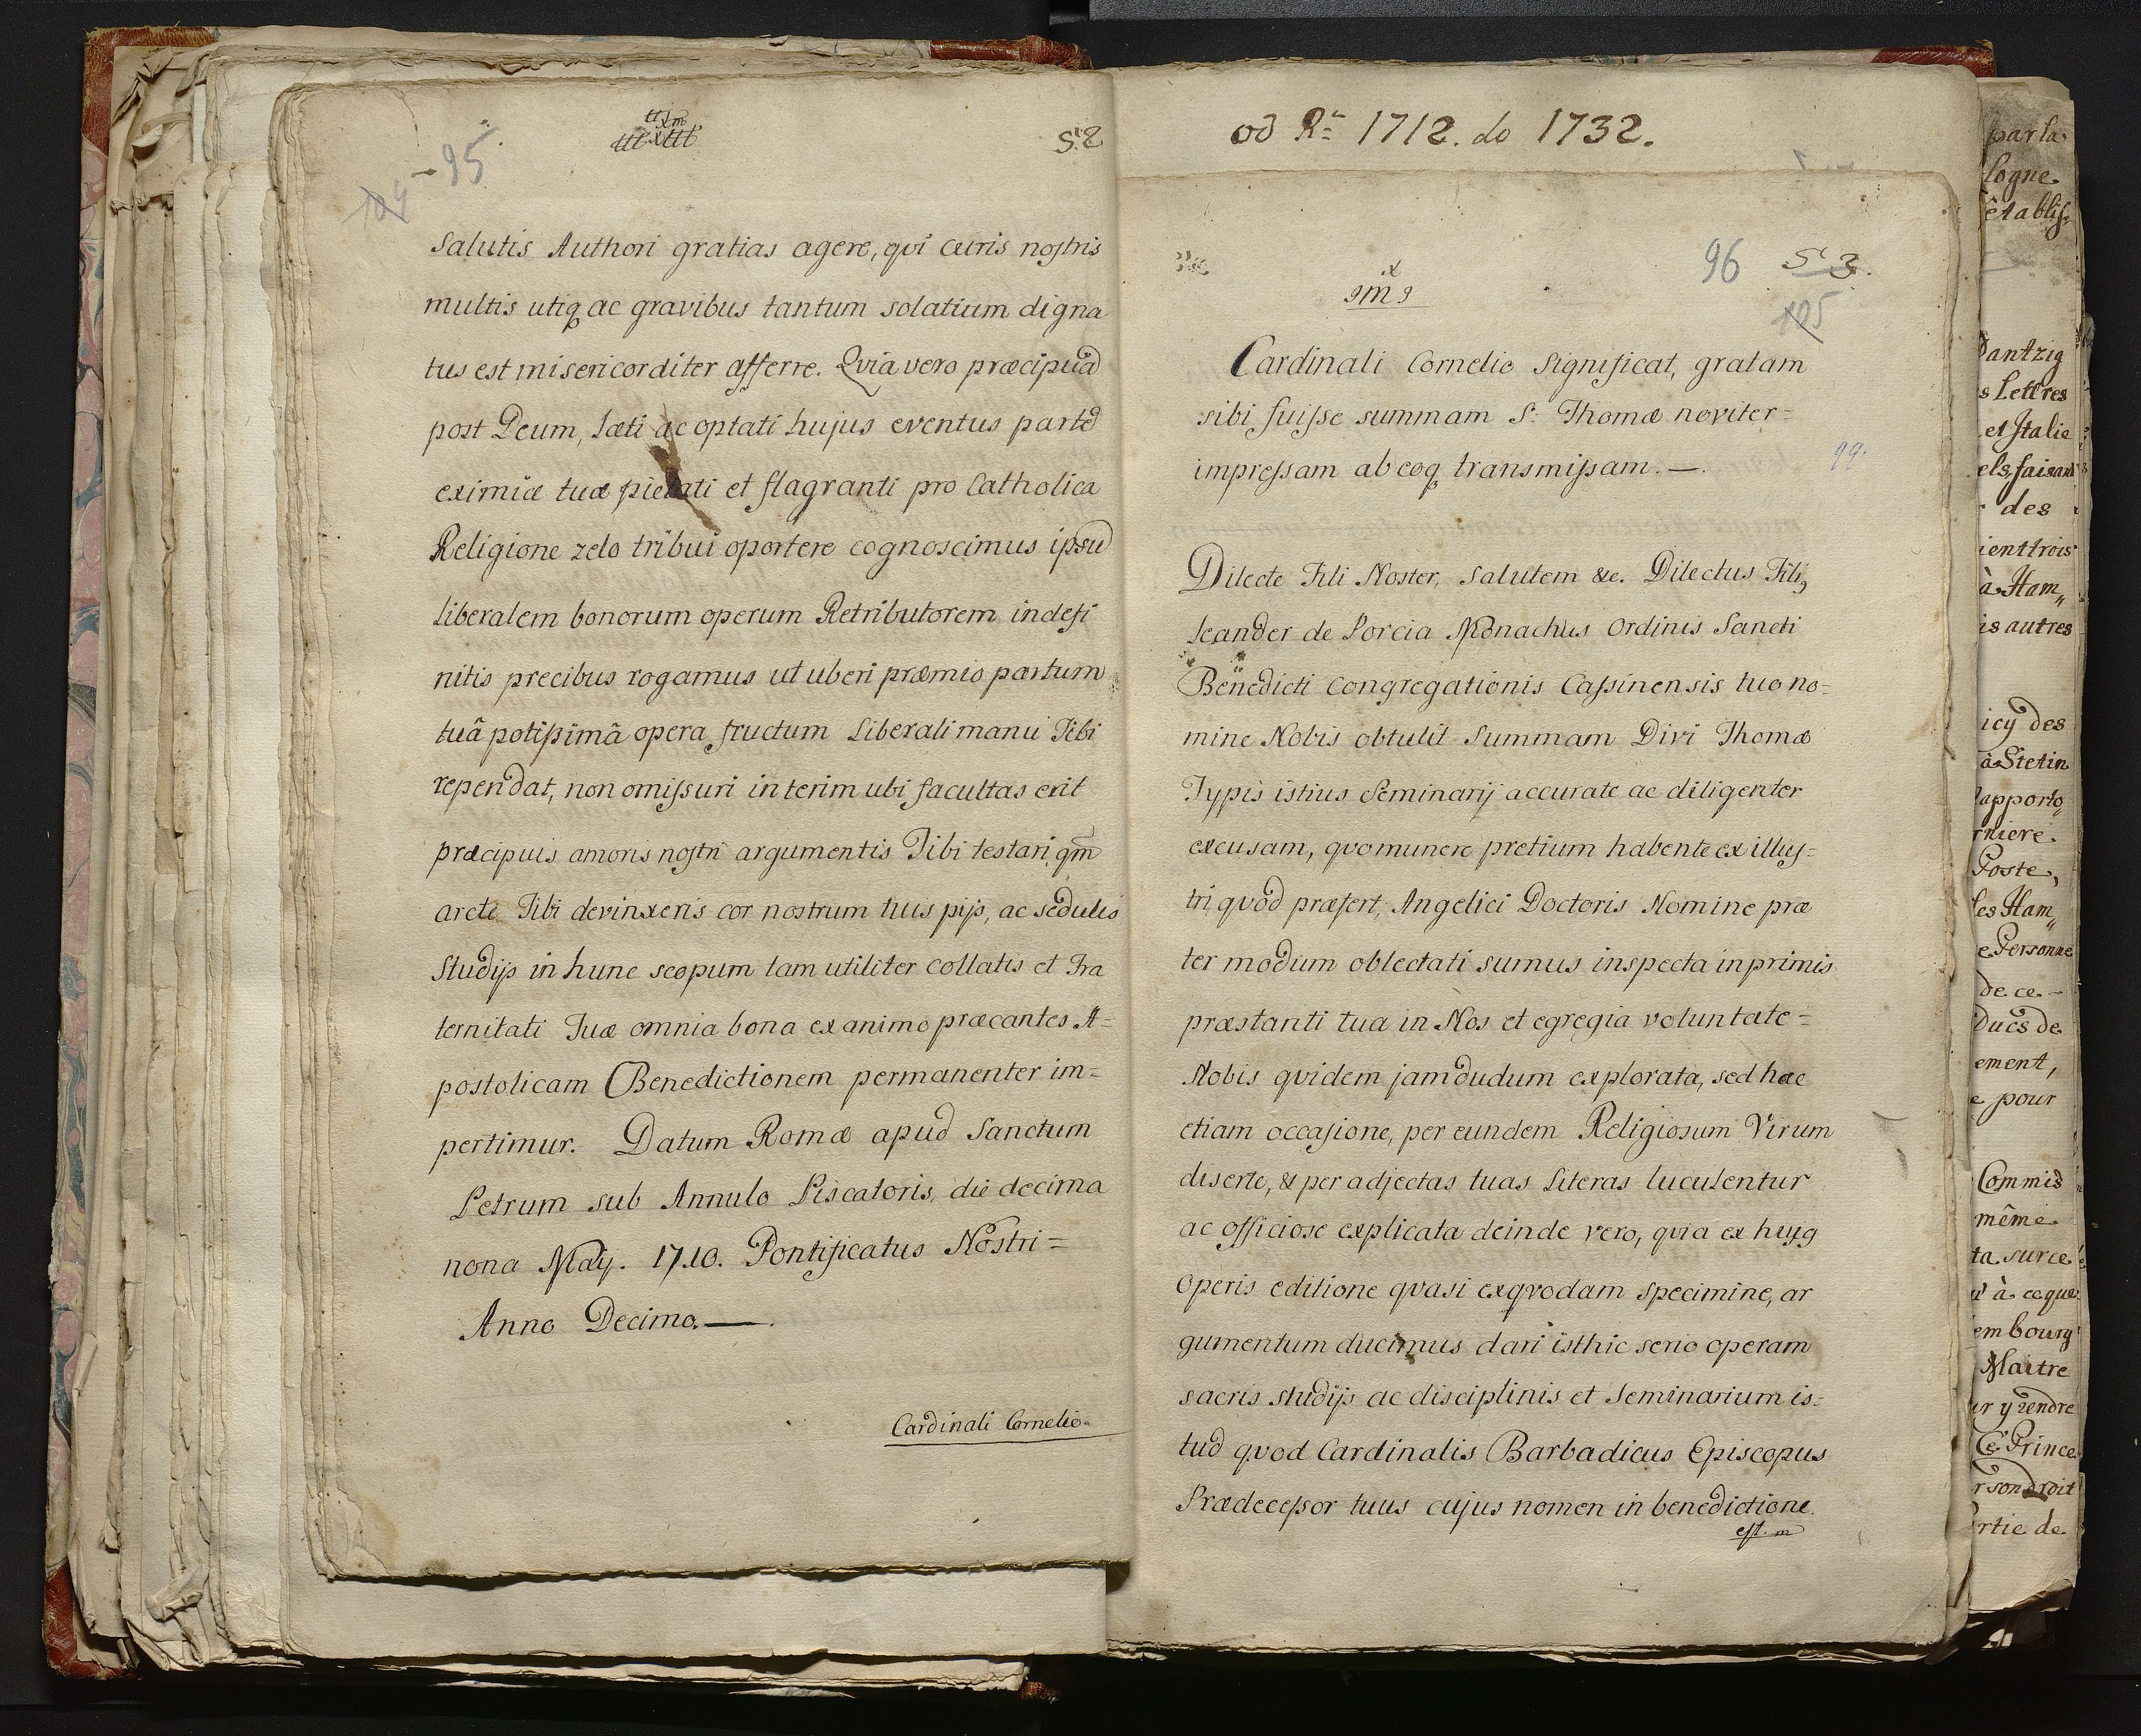 104 95.
S. 2
salutis Authori gratias agere, qvi curis nostris
multis utiq ac gravibus tantum solatium digna
tus est misericorditer afferre. Qvia vero præcipuã
post Deum, læti ac optati hujus eventus partẽ
eximiæ tuæ pietati et flagranti pro Catholica
Religione zelo tribui oportere cognoscimus ipsũ
liberalem bonorum operum Retributorem indefi
nitis precibus rogamus ut uberi præmio partum
tuâ potissimâ opera fructum Liberali manu Tibi
rependat, non omissuri interim ubi facultas erit
præcipuis amoris nostri argumentis Tibi testari, qm̃
arcte Tibi devinxeris cor nostrum tuis pijs, ac sedulis
Studijs in hunc scopum tam utiliter collatis et Fra
ternitati Tuæ omnia bona ex animo præcantes A=
postolicam Benedictionem permanenter im=
pertimur. Datum Romæ apud Sanctum
Petrum sub Annulo Piscatoris, die decima
nona Maij. 1710. Pontificatus Nostri=
Anno Decimo.—.
Cardinali Cornelio.
od Rũ 1712. do 1732.
96 S. 3.
105
Cardinali Cornelio Significat, gratam
sibi fuisse summam S. Thomæ noviter=
impressam ab eoq transmissam.—.
99.
Dilecte Fili Noster, Salutem &c. Dilectus Fili9
Leander de Porcia Monachus Ordinis Sancti
Benedicti Congregationis Cassinensis tuo no=
mine Nobis obtulit Summam Divi Thomæ
Typis istius Seminarij accurate ac diligenter
excusam, qvo munere pretium habente ex illus=
tri, qvod præfert, Angelici Doctoris Nomine præ
ter modum oblectati sumus inspecta inprimis
præstanti tua in Nos et egregia voluntate=
Nobis qvidem jamdudum explorata, sed hac
etiam occasione, per eundem Religiosum Virum
diserte, & per adjectas tuas Literas luculentur
ac officiose explicata deinde vero, qvia ex hujq
operis editione qvasi ex qvodam specimine, ar
gumentum ducimus dari isthic serio operam
sacris studijs ac disciplinis et Seminarium is=
tud qvod Cardinalis Barbadicus Episcopus
Prædecessor tuus cujus nomen in benedictione
est. m
par la
logne
établis=
Dantzig
s Lettres
et Italie
els, faisant
des
ient trois
à Ham„
is autres
icy des
à Stetin
rniere.
Poste,
les Ham„
e Personne
de ce
Ducs de
ement,
e pour
Commis
même
ta sur ce
à ce que
embourg
Maitre
er y rendre
Ce Prince
r son droit
rtie de